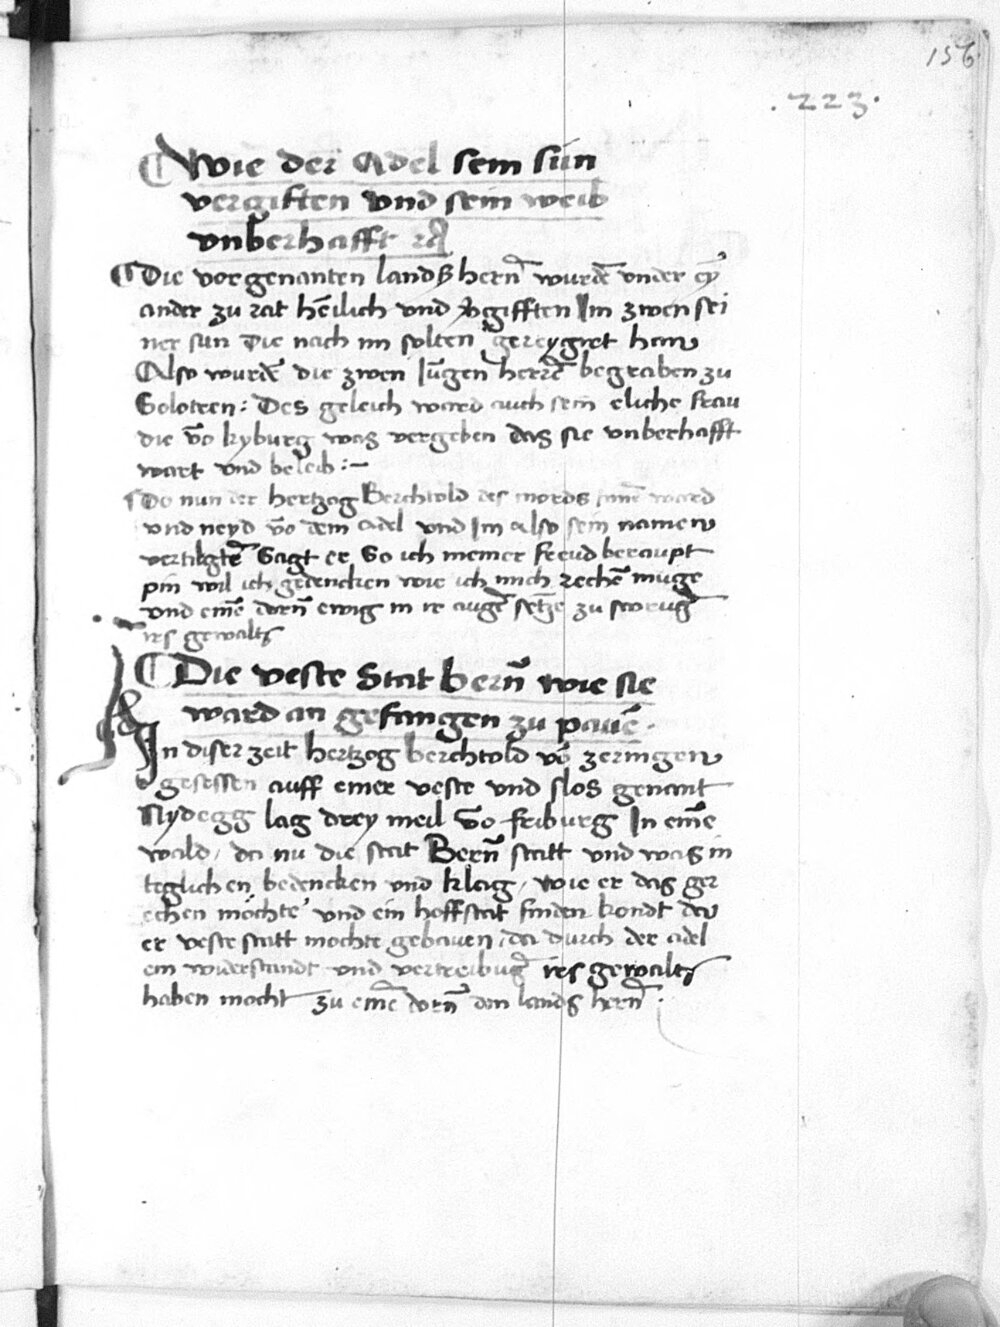 156
.223.
Wie der Adel sein sün
vergiften vnd sein weib
vnberhafft
Die vorgenanten landsz hern̄ wurdē vnder ey̅
ander zu rat hēilich vnd v̾gifften Im zwen sei
ner sun Die nach im solten gereygret han
Also wurdē die zwen Jūgen herrē begraben zu
Solotren: Des geleich ward auch sein eliche frau
die vō kyburg was vergeben das sie vnberhafft
wart vnd beleib :~
Do nun der hertzog Berchtold des mords innē ward
vnd neyd vō dem adel vnd Im also sein namen
vertilgtē Sagt er So ich meiner freud beraupt
pin wil ich gedencken wie ich mich rechē muge
vnd einē dorn̄ ewig in ir augē setzē zu
irs gewaltz
Die veste Stat bern̄ wie sie
ward an gefangen zu pauē .
In diser zeit hertzog berchtold vō zeringen
gesessen auff einer veste vnd slos genant
Nydegg lag drey meil vō friburg In einē
wald / da nu die stat Bern̄ statt vnd was in
teglichen bedencken vnd klag / wie er das ger
echen möchte vnd ein hoffstat finden kondt der
er veste statt mochte gebauen / da durch der adel
ein widerstandt vnd vertreibūg irs gewaltz
haben mocht zu einē dorn̄ den lands hern̄ .